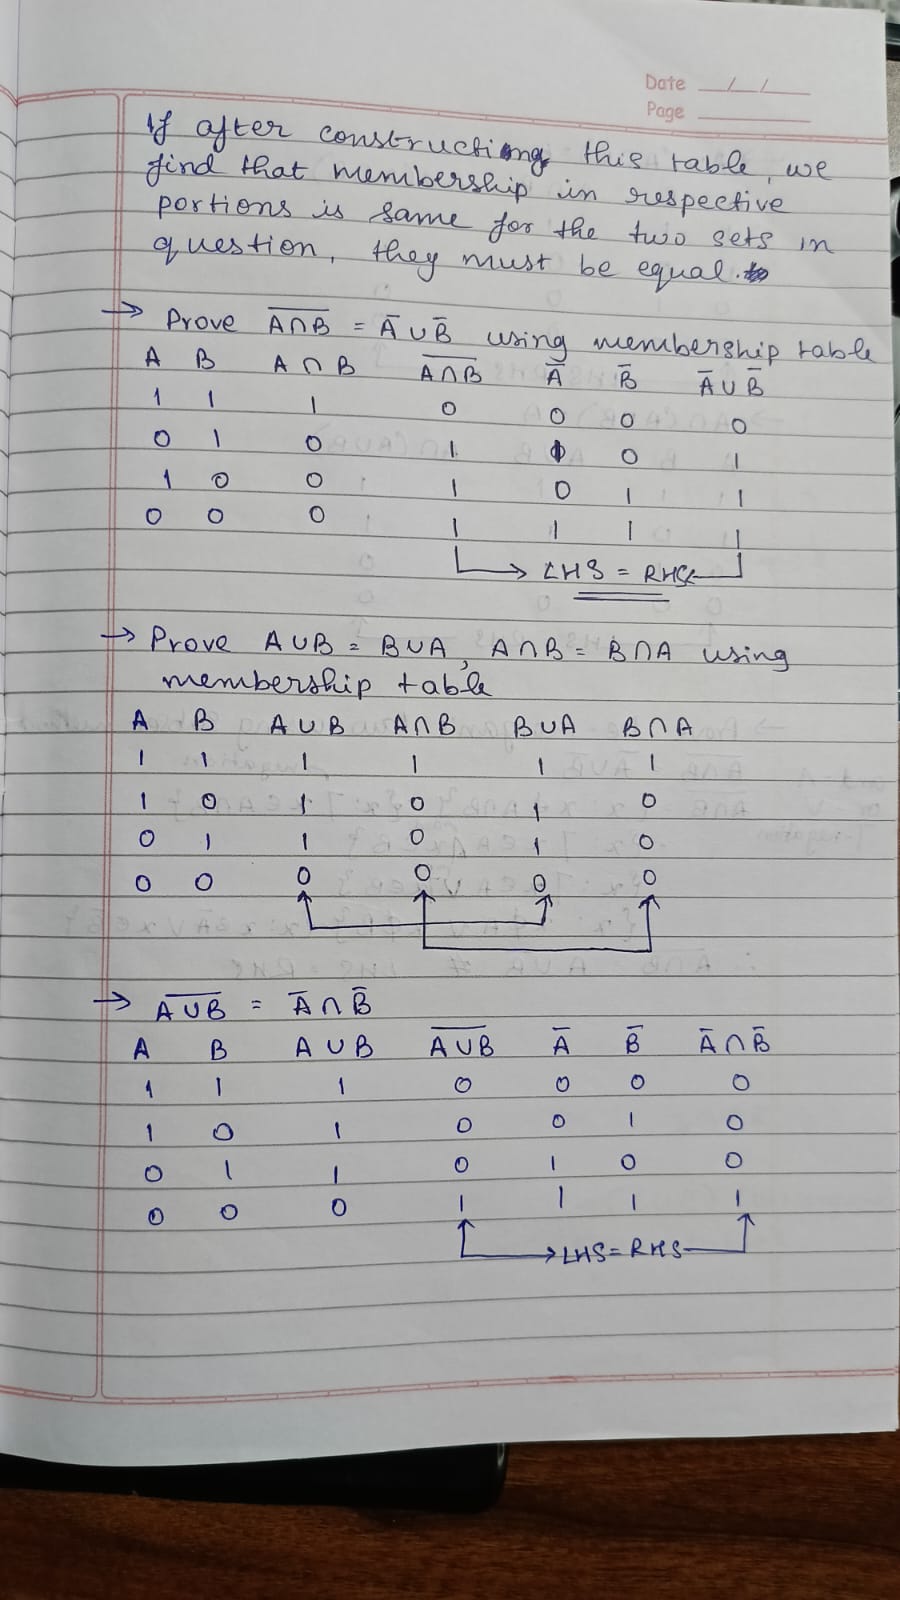 Date __/__/__
Page ________
If after constructing this table, we
find that membership in respective
portions is same for the two sets in
question, they must be equal.
→ Prove A̅∩̅B̅ = A̅ ∪ B̅ using membership table
A B A ∩ B A̅∩̅B̅ A̅ B̅ A̅ ∪ B̅
1 1 1 0 0 0 0
0 1 0 1 1 0 1
1 0 0 1 0 1 1
0 0 0 1 1 1 1
→ LHS = RHS
→ Prove A ∪ B = B ∪ A, A ∩ B = B ∩ A using
membership table
A B A ∪ B A ∩ B B ∪ A B ∩ A
1 1 1 1 1 1
1 0 1 0 1 0
0 1 1 0 1 0
0 0 0 0 0 0
→ A̅∪̅B̅ = A̅ ∩ B̅
A B A ∪ B A̅∪̅B̅ A̅ B̅ A̅ ∩ B̅
1 1 1 0 0 0 0
1 0 1 0 0 1 0
0 1 1 0 1 0 0
0 0 0 1 1 1 1
→ LHS = RHS